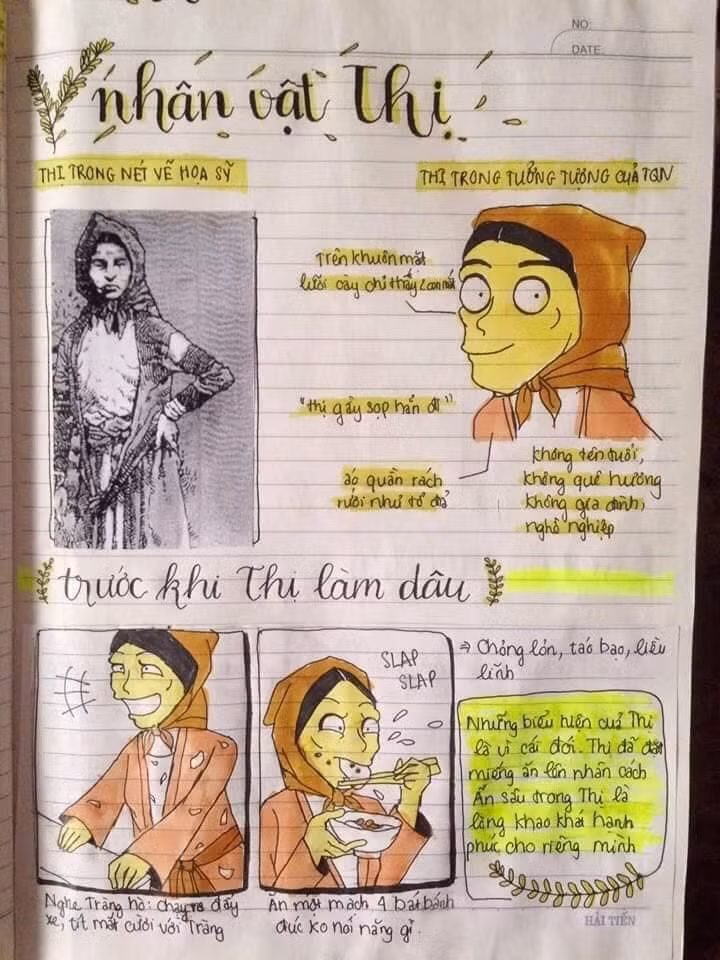 NO:
DATE:
nhân vật Thị
THỊ TRONG NÉT VẼ HỌA SỸ
THỊ TRONG TƯỞNG TƯỢNG CỦA TQN
Trên khuôn mặt
lưỡi cày chỉ thấy 2 con mắt
"thị gầy sọp hẳn đi"
áo quần rách
rưới như tổ đỉa
không tên tuổi,
không quê hương
không gia đình,
nghề nghiệp
trước khi Thị làm dâu
SLAP
SLAP
⇒ Chỏng lỏn, táo bạo, liều
lĩnh
Những biểu hiện của Thị
là vì cái đói. Thị đã đặt
miếng ăn lên nhân cách
Ẩn sâu trong Thị là
lòng khao khát hạnh
phúc cho riêng mình
Nghe Tràng hò: chạy ra đẩy
xe, tít mắt cười với Tràng
Ăn một mạch 4 bát bánh
đúc ko nói năng gì.
HẢI TIẾN